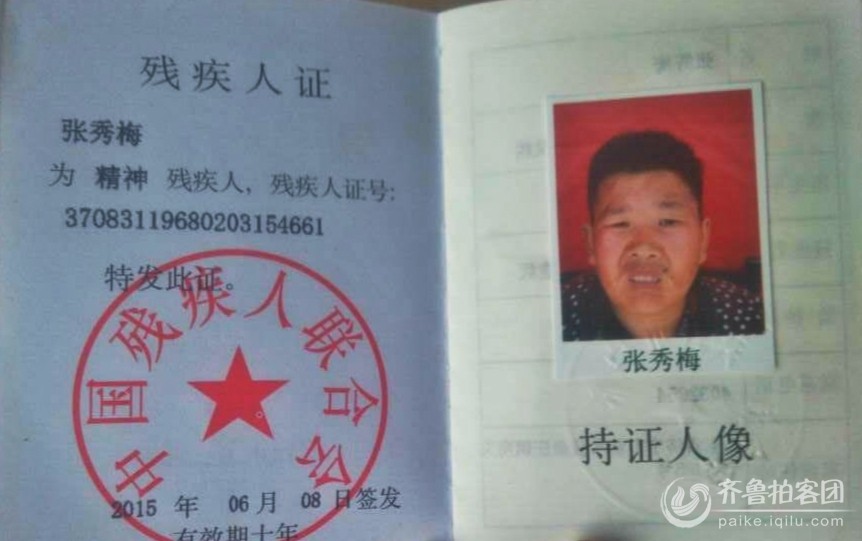 残疾人证
张秀梅
为 精神 残疾人，残疾人证号:
37083119680203154661
特发此证。
中国残疾人联合会
2015 年 06 月 08 日签发
有效期十年
张秀梅
持证人像
齐鲁拍客团
paike.iqilu.com